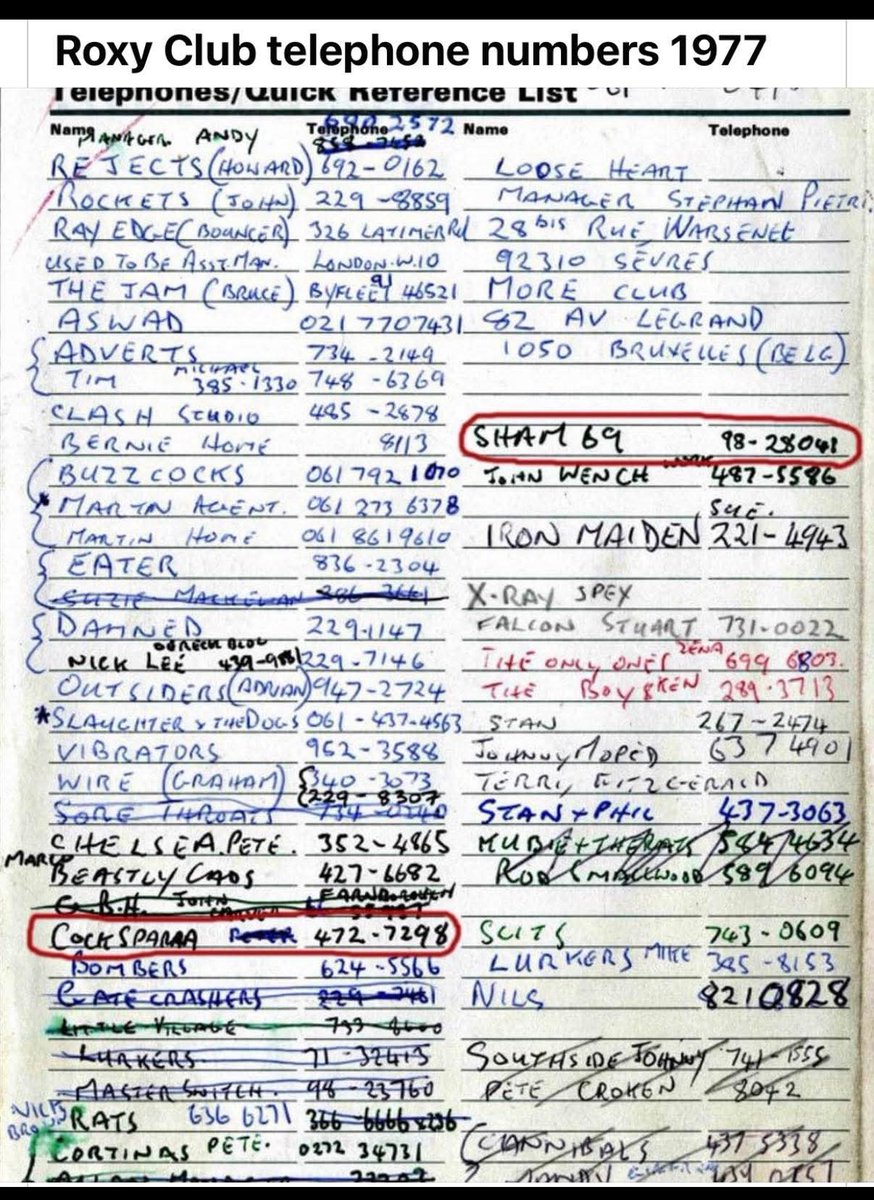 Roxy Club telephone numbers 1977
Telephones/Quick Reference List
Name Telephone
MANAGER ANDY 690 2572
REJECTS (HOWARD) 692-0162
ROCKETS (JOHN) 229-8859
RAY EDGE (BOUNCER) 326 LATIMER Rd
USED TO BE ASST. MAN. LONDON. W.10
THE JAM (BRUCE) BYFLEET 91 46521
ASWAD 021 7707431
ADVERTS 734-2149
TIM MICHAEL 385-1330 748-6369
CLASH STUDIO 485-2878
BERNIE HOME 8113
BUZZCOCKS 061 792 1070
* MARTIN AGENT. 061 273 6378
MARTIN HOME 061 8619610
EATER 836-2304
SUZIE 286-3661
DAMNED 229-1147
NICK LEE 439-9881 229-7146
OUTSIDERS (ADRIAN) 947-2724
* SLAUGHTER & THE DOGS 061-437-4563
VIBRATORS 952-3588
WIRE (GRAHAM) 340-3073
229-8307
SORE THROATS 734-0240
CHELSEA. PETE. 352-4865
MARCO
BEASTLY CADS 427-6682
G.B.H. JOHN FARNBOROUGH
COCKSPARRA 472-7298
BOMBERS 624-5566
GATE CRASHERS 229-7481
LITTLE VILLAGE 733
LURKERS 71-32415
MASTERSWITCH. 98-23760
RATS 636 6271 366-6666 8236
CORTINAS PETE. 0272 34731
Name Telephone
LOOSE HEART
MANAGER STEPHAN PIETRI.
28 bis RUE WARSENET
92310 SÈVRES
MORE CLUB
82 AV LEGRAND
1050 BRUXELLES (BELG)
SHAM 69 98-28041
JOHN WENCH WORK 487-5586
SUE.
IRON MAIDEN 221-4943
X-RAY SPEX
FALCON STUART 731-0022
THE ONLY ONES ZENA 699 6803.
THE BOYS KEN 289-3713
STAN 267-2474
JOHNNY MOPED 637 4901
TERRY, FITZGERALD
STAN + PHIL 437-3063
MUBIE + THE RATS 584 4634
ROD SMALLWOOD 589 6094
SLITS 743-0609
LURKERS MIKE 385-8153
NILS 821 0828
SOUTHSIDE JOHNNY 741-1555
PETE CROKEN 8042
CANNIBALS 437 5338